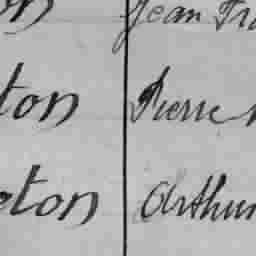 on Jean Fra
ton Pierre
eton Arthur